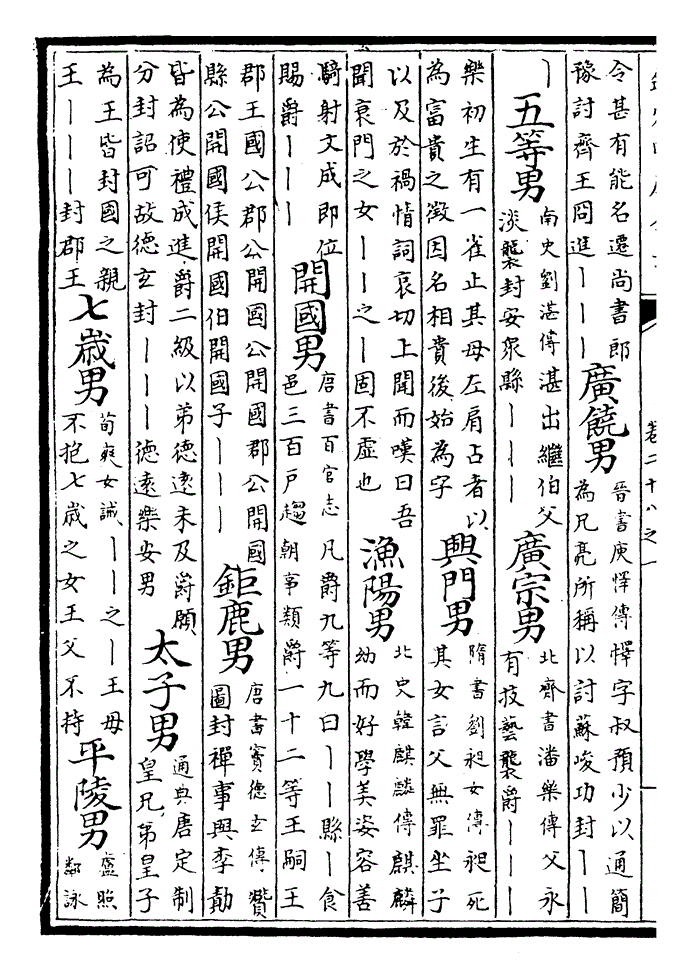 令甚有能名遷尚書郎
豫討齊王冏進丨丨丨
廣饒男
晉書庾懌傳懌字叔預少以通簡
為兄亮所稱以討蘇峻功封丨丨丨
丨
五等男
南史劉湛傳湛出繼伯父
淡襲封安衆縣丨丨丨
廣宗男
北齊書潘樂傳父永
有技藝襲爵丨丨丨
樂初生有一雀止其母左肩占者以
為富貴之徵因名相貴後始為字
興門男
隋書劉昶女傳昶死
其女言父無罪坐子
以及於禍情詞哀切上聞而嘆曰吾
聞衰門之女丨丨之丨固不虛也
漁陽男
北史韓麒麟傳麒麟
幼而好學美姿容善
騎射文成即位
賜爵丨丨丨
開國男
唐書百官志凡爵九等九曰丨丨縣丨食
邑三百戶趨朝事類爵一十二等王嗣王
郡王國公郡公開國公開國郡公開國
縣公開國侯開國伯開國子丨丨丨
鉅鹿男
唐書竇德玄傳贊
圖封禪事與李勣
皆為使禮成進爵二級以弟德遠未及爵願
分封詔可故德玄封丨丨丨德遠樂安男
太子男
通典唐定制
皇兄弟皇子
為王皆封國之親
王丨丨丨封郡王
七歲男
荀爽女誡丨丨之丨王母
不抱七歲之女王父不持
平陵男
盧照
鄰詠
卷二十八之一